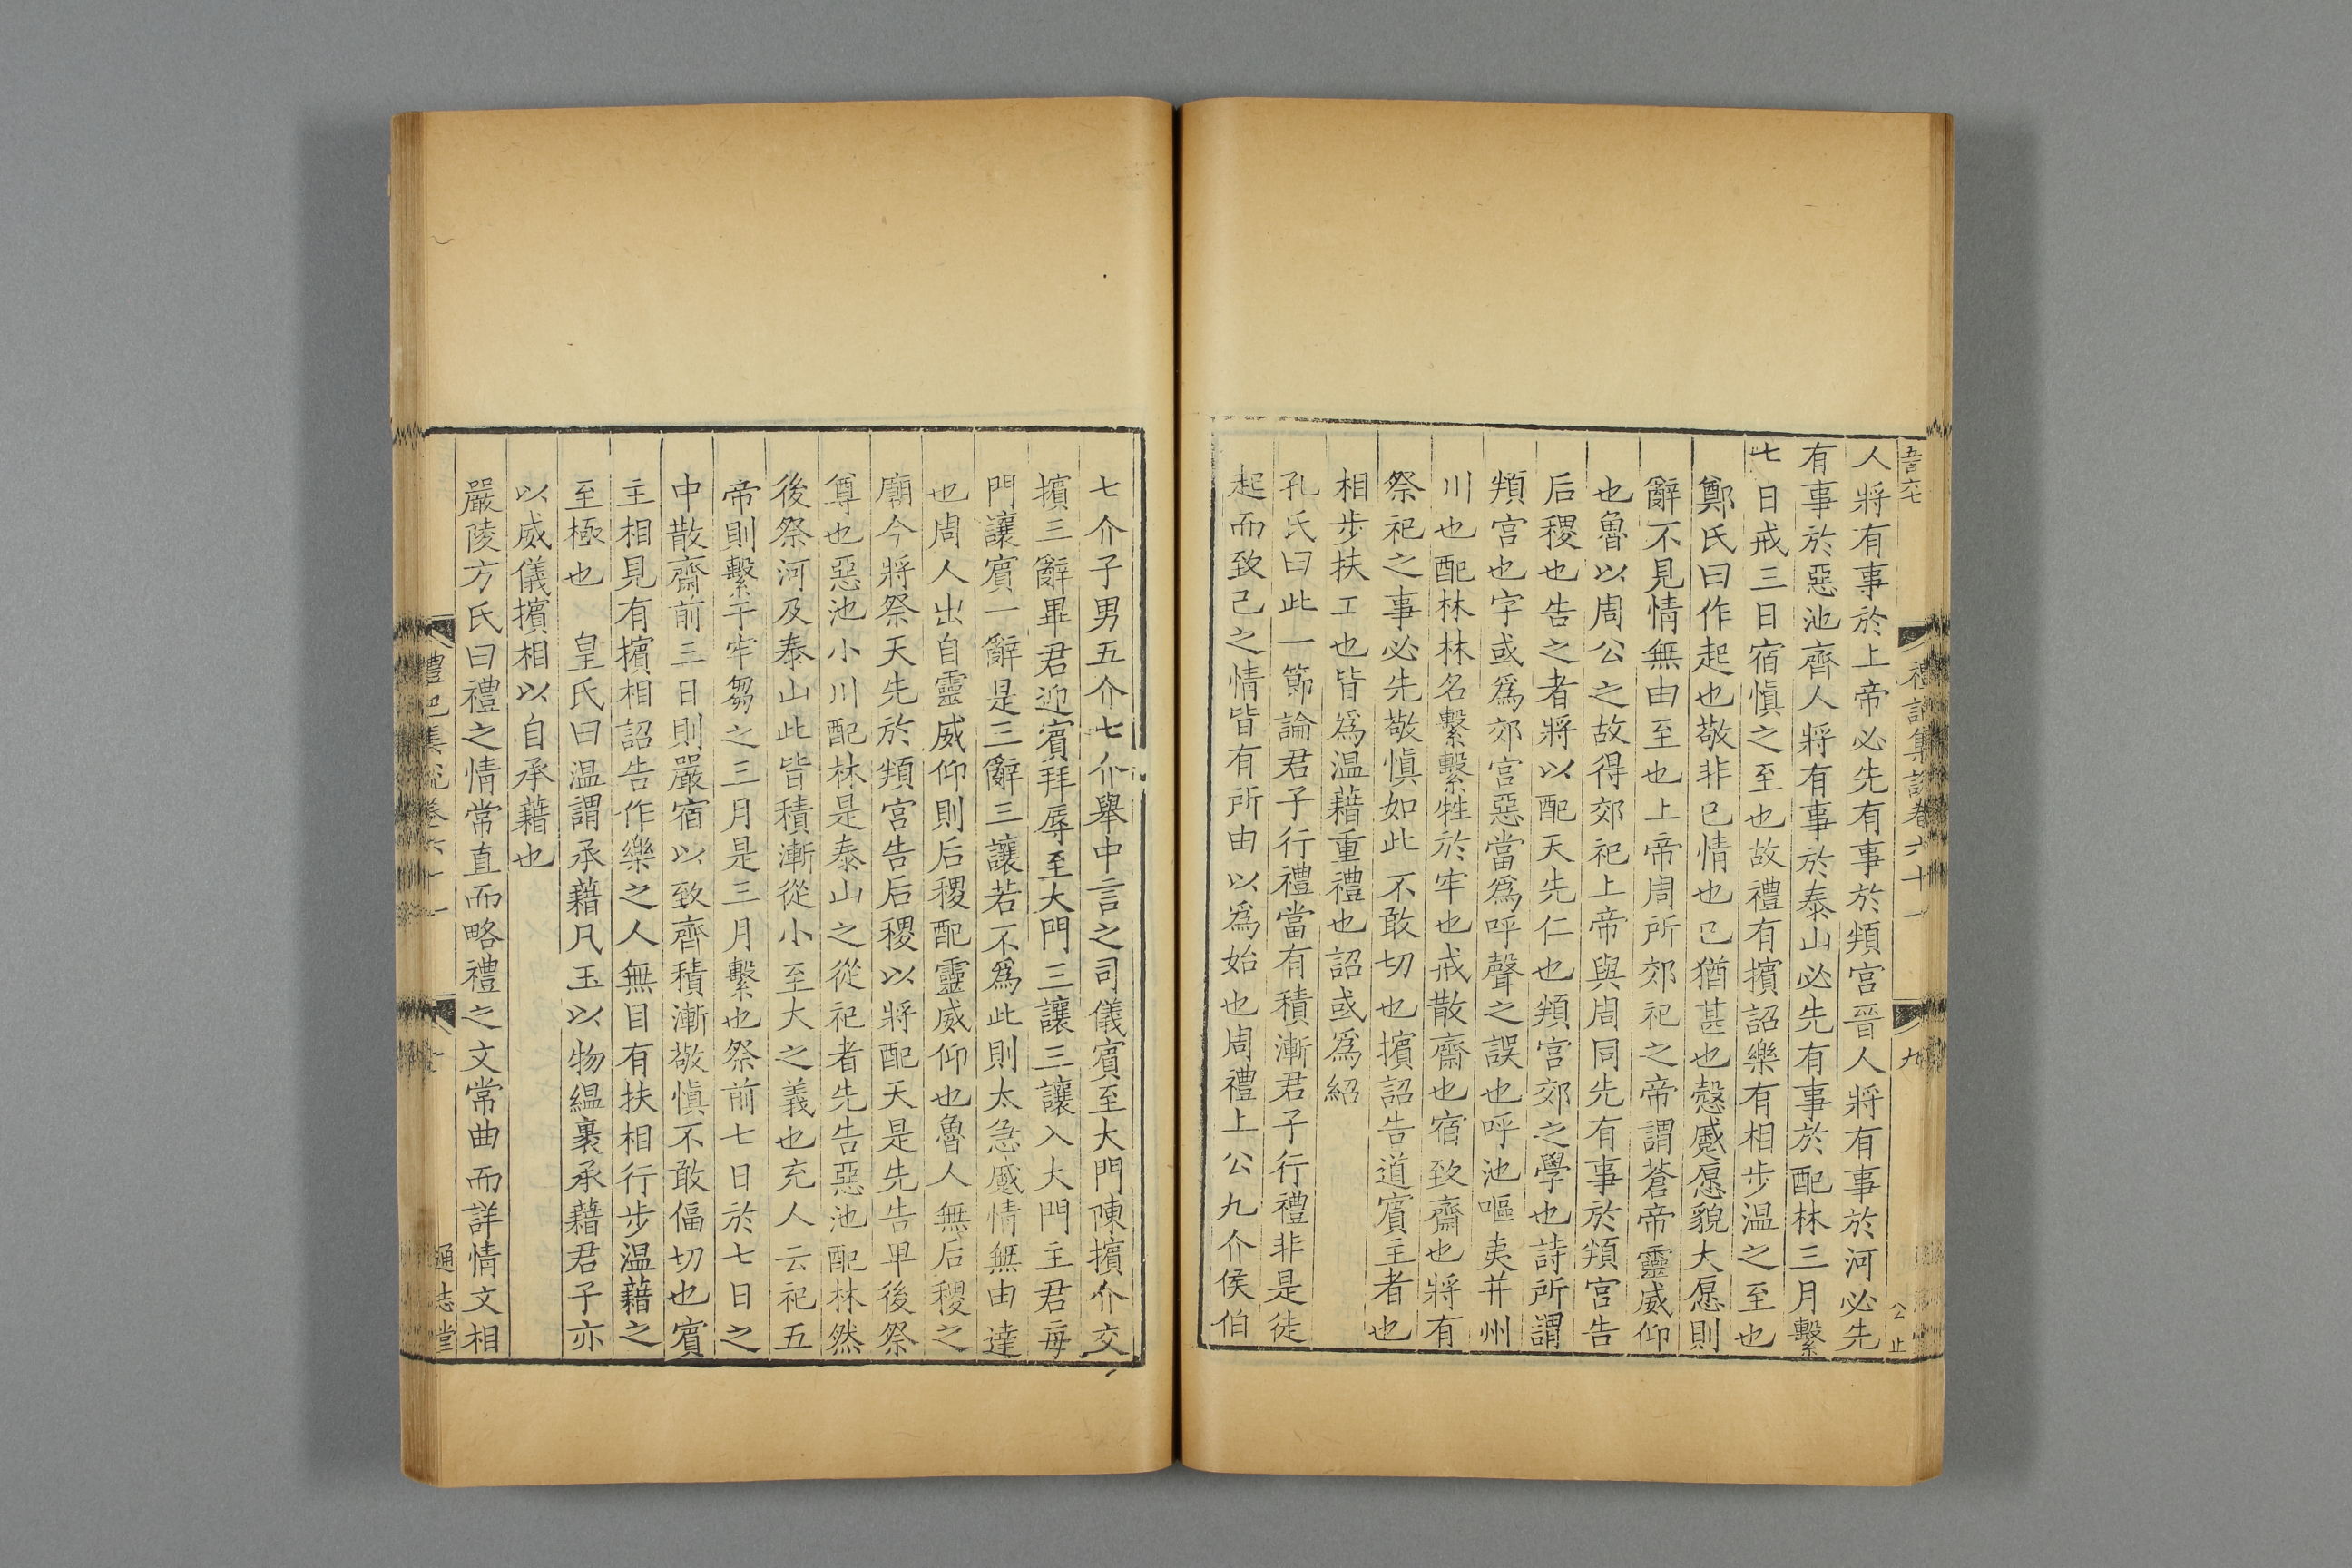 五百六七
禮記集說卷六十一
九
公止
人將有事於上帝必先有事於頖宮晉人將有事於河必先
有事於惡池齊人將有事於泰山必先有事於配林三月繫
七日戒三日宿慎之至也故禮有擯詔樂有相步温之至也
鄭氏曰作起也敬非己情也己猶甚也愨慼愿貌大愿則
辭不見情無由至也上帝周所郊祀之帝謂蒼帝靈威仰
也魯以周公之故得郊祀上帝與周同先有事於頖宮告
后稷也告之者將以配天先仁也頖宮郊之學也詩所謂
頖宮也字或爲郊宮惡當爲呼聲之誤也呼池嘔夷并州
川也配林林名繫繫牲於牢也戒散齋也宿致齋也將有
祭祀之事必先敬慎如此不敢切也擯詔告道賓主者也
相步扶工也皆爲温藉重禮也詔或爲紹
孔氏曰此一節論君子行禮當有積漸君子行禮非是徒
起而致己之情皆有所由以爲始也周禮上公九介侯伯
七介子男五介七介舉中言之司儀賓至大門陳擯介交
擯三辭畢君迎賓拜辱至大門三讓三讓入大門主君每
門讓賓一辭是三辭三讓若不爲此則太急慼情無由達
也周人出自靈威仰則后稷配靈威仰也魯人無后稷之
廟今將祭天先於頖宮告后稷以將配天是先告卑後祭
尊也惡池小川配林是泰山之從祀者先告惡池配林然
後祭河及泰山此皆積漸從小至大之義也充人云祀五
帝則繫于牢芻之三月是三月繫也祭前七日於七日之
中散齋前三日則嚴宿以致齊積漸敬慎不敢偪切也賓
主相見有擯相詔告作樂之人無目有扶相行步温藉之
至極也　皇氏曰温謂承藉凡玉以物緼裹承藉君子亦
以威儀擯相以自承藉也
嚴陵方氏曰禮之情常直而略禮之文常曲而詳情文相
禮記集說卷六十一
通志堂